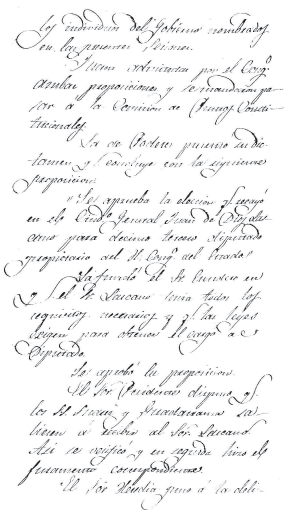 los individuos del Gobierno nombrados
en las presentes Sesiones.
Fueron admitidas por el Congo.
ambas proposiciones y se mandaron pa-
sar a la Comision de Puntos Consti-
tucionales.
La de Poderes presentó su dic-
tamen q. concluye con la siguiente
proposicion.
"Se aprueba la eleccion q. recayó
en el Ciudo. General Juan de Dios
cano para decimo tercero diputado
propietario del H. Congo. del Estado"
La fundó el Sr. en
q. el Sr. Lazcano tenia todos los
requisitos necesarios y q. las leyes
exigen para obtener el cargo de
Diputado.
Se aprobó la proposicion.
El Sor. Presidente dispuso q.
los SS. y Guadarrama sa-
lieran á recibir al Sor. Lazcano
Asi se verificó, y en seguida hizo el
juramento correspondiente.
El Sor. Heredia pidió á la deli-